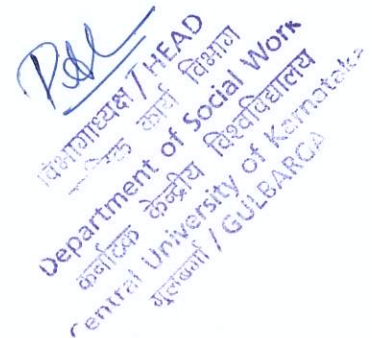 विभागाध्यक्ष / HEAD
कार्य विभाग
Department of Social Work
कर्नाटक केन्द्रीय विश्वविद्यालय
Central University of Karnataka
गुलबर्गा / GULBARGA